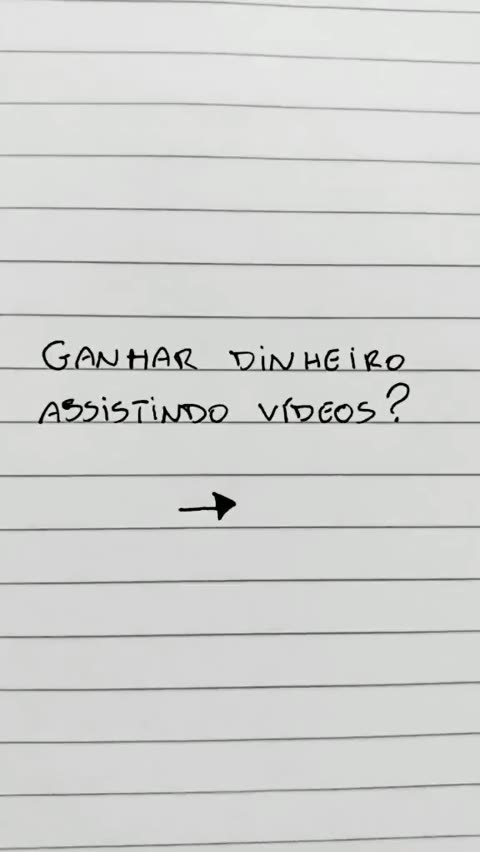 GANHAR DINHEIRO
ASSISTINDO VÍDEOS?
→